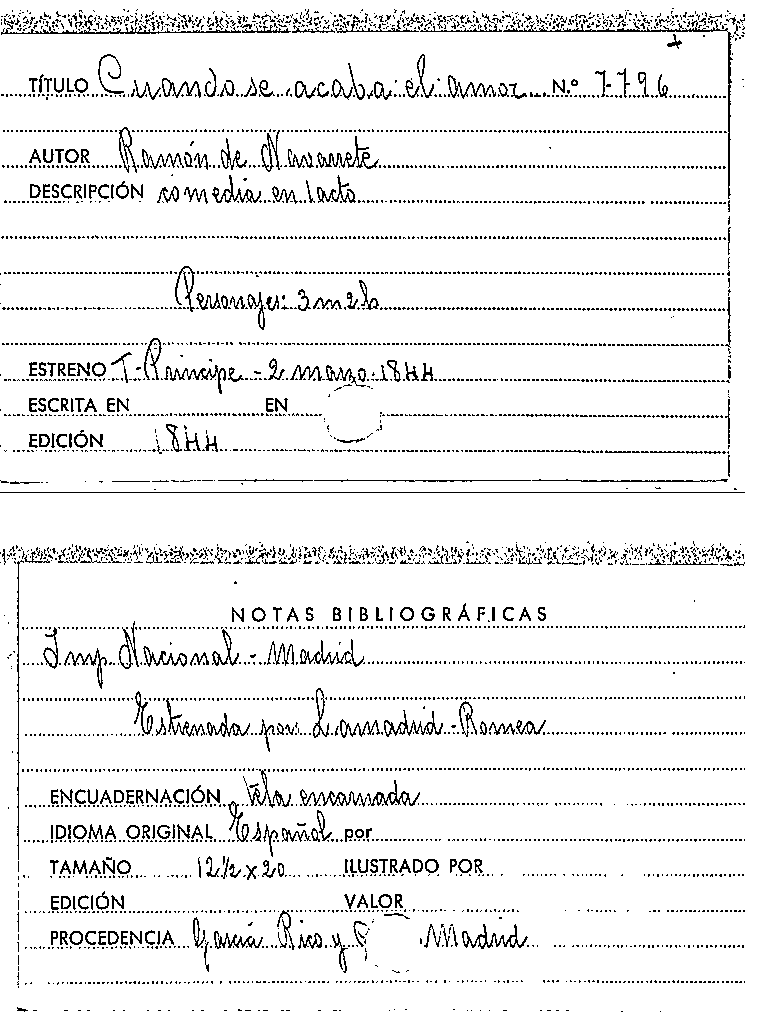 TÍTULO Cuando se acaba el amor N.º 7-796
AUTOR Ramón de Navarrete
DESCRIPCIÓN comedia en 1 acto
Personajes: 3 m 2 h
ESTRENO T. Príncipe - 2 marzo - 1844
ESCRITA EN EN
EDICIÓN 1844
NOTAS BIBLIOGRÁFICAS
Imp Nacional - Madrid
Estrenada por Lamadrid - Romea
ENCUADERNACIÓN tela encarnada
IDIOMA ORIGINAL Español por
TAMAÑO 12 1/2 x 20 ILUSTRADO POR
EDICIÓN VALOR
PROCEDENCIA García Rico y Madrid